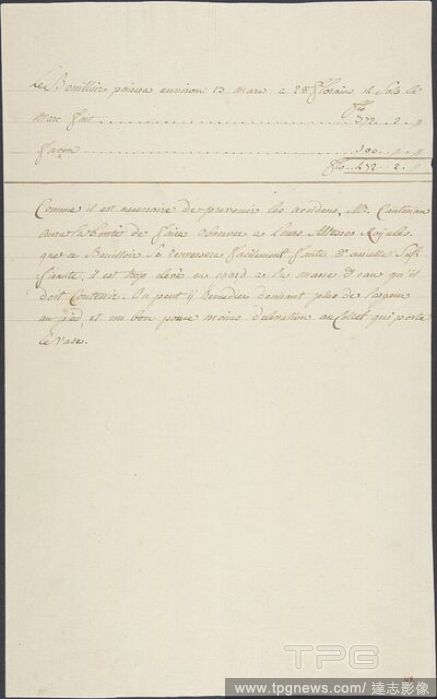 Le Bouilloir poisera environ 13 marc a 28 florains 14 Sols le
Marc fait .......... flo 372 .. 2 .. "
façon .......... 100 .. " .. "
flo 472 .. 2 .. "
Comme il est necessaire de prevenir les accidens, Mr.
aura la bonté de faire observer a Leurs Altesses Royales
que ce Bouilloir se renversera facilement faute d'assiette Suffi
sante, il est trop elevé en egard a la masse d'eau qu'il
doit Contenir. On peut y Remedier donnant plus de largeur
au pied, et un bon pouce moins d'elevation au Collet qui porte
le Vase.
TPG
www.tpgnews.com / 達志影像